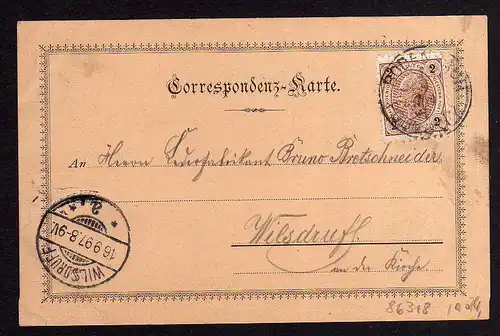 2
2 2
Correspondenz-Karte.
An Herrn Bruno Bretschneider
Wilsdruff
an der Kirche
WILSDRUFF
16.9.97.8-9V.
86318